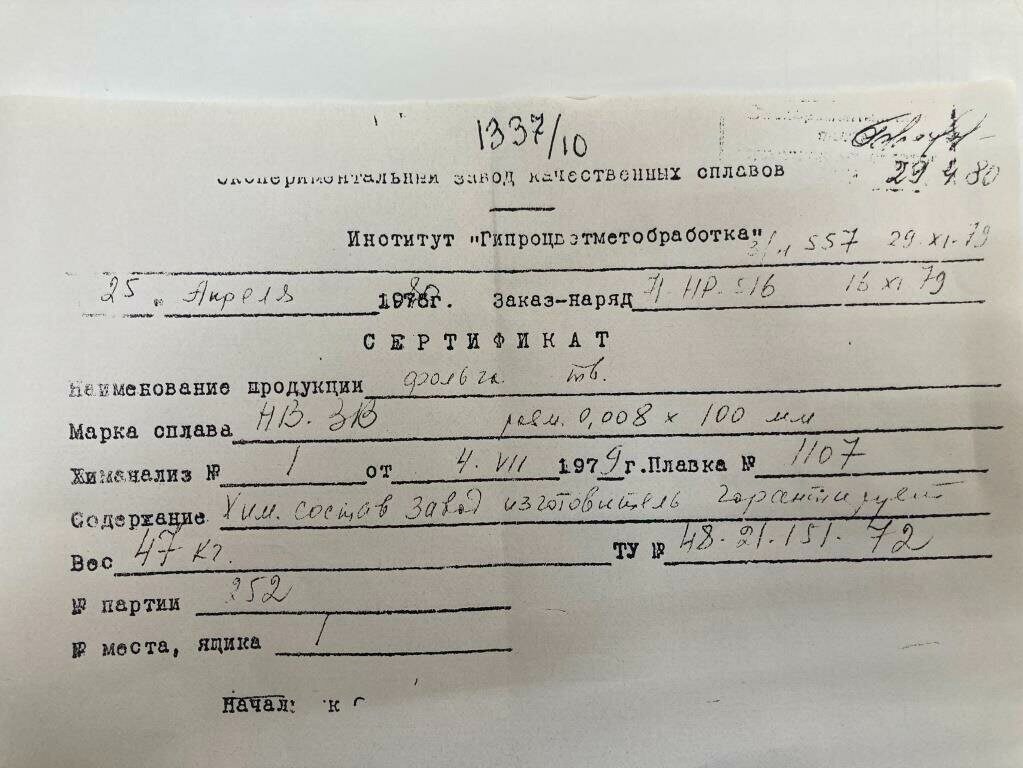 1337/10
29.4.80
экспериментальный завод качественных сплавов
Институт "Гипроцветметобработка"
557 29.XI.79
25. Апреля 1980г. Заказ-наряд НР.516 16 XI 79
СЕРТИФИКАТ
Наименование продукции фольга тв.
Марка сплава НВ-3В разм. 0,008 х 100 мм
Химанализ № 1 от 4.VII 1979г. Плавка № 1107
Содержание Хим. состав завод изготовитель гарантирует
Вес 47 кг. ТУ № 48-21-151-72
№ партии 252
№ места, ящика 1